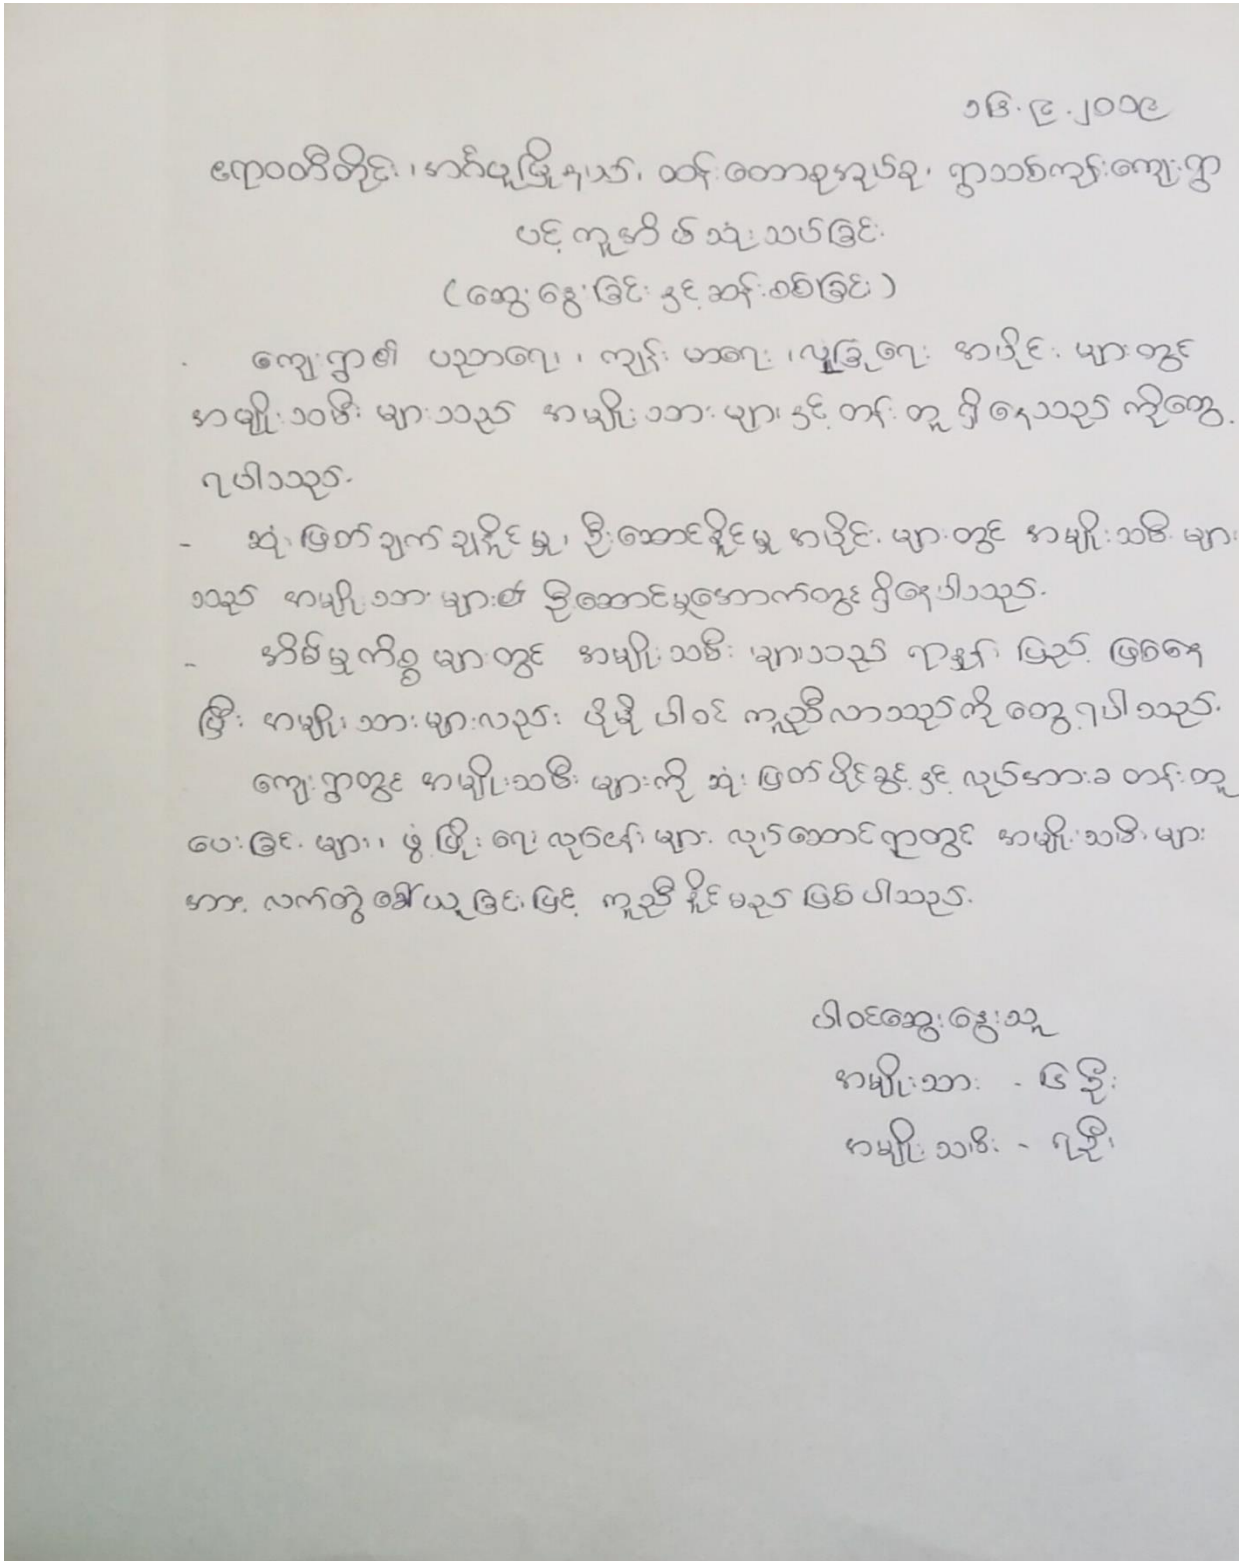 ၁၆.၉.၂၀၁၉
ဧရာဝတီတိုင်း၊ အင်္ဂပူမြို့နယ်၊ ထန်းတောစုအုပ်စု၊ ရွာသစ်ကုန်းကျေးရွာ
ပင့်ကူအိမ်သုံးသပ်ခြင်း
(ဆွေးနွေးခြင်းနှင့်ဆန်းစစ်ခြင်း)
- ကျေးရွာ၏ ပညာရေး၊ ကျန်းမာရေး၊ လူမှုရေး အပိုင်းများတွင်
အမျိုးသမီးများသည် အမျိုးသားများနှင့်တန်းတူရှိနေသည်ကိုတွေ့
ရပါသည်။
- ဆုံးဖြတ်ချက်ချနိုင်မှု၊ ဦးဆောင်နိုင်မှု အပိုင်းများတွင် အမျိုးသမီးများ
သည် အမျိုးသားများ၏ ဦးဆောင်မှုအောက်တွင်ရှိနေပါသည်။
- အိမ်မှုကိစ္စများတွင် အမျိုးသမီးများသည် ရာနှုန်းပြည့်ဖြစ်နေ
ပြီး အမျိုးသားများလည်း ပိုမိုပါဝင်ကူညီလာသည်ကိုတွေ့ရပါသည်။
ကျေးရွာတွင် အမျိုးသမီးများကို ဆုံးဖြတ်ပိုင်ခွင့်နှင့် လုပ်အားခတန်းတူ
ပေးခြင်းများ၊ ဖွံ့ဖြိုးရေးလုပ်ငန်းများ လုပ်ဆောင်ရာတွင် အမျိုးသမီးများ
အား လက်တွဲခေါ်ယူခြင်းဖြင့် ကူညီနိုင်မည်ဖြစ်ပါသည်။
ပါဝင်ဆွေးနွေးသူ
အမျိုးသား - ၆ဦး
အမျိုးသမီး - ၇ဦး